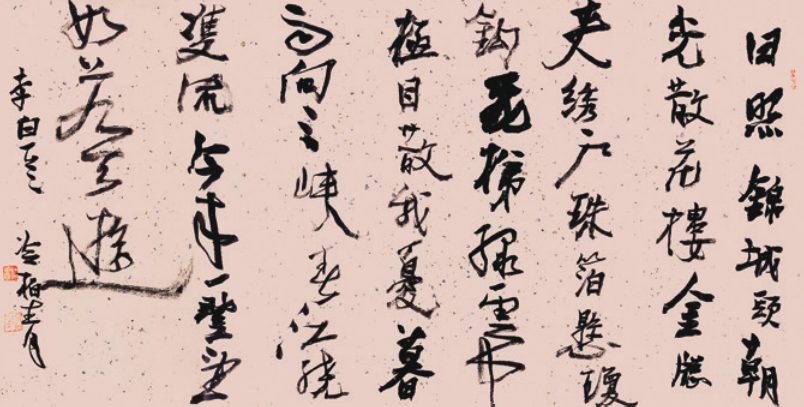 日照錦城頭朝
光散花樓金牕
夾綉戶珠箔懸瓊
鉤飛梯綠雲中
極目散我憂暮
雨向三峽春江繞
雙流今來一登望
如上九天遊
李白